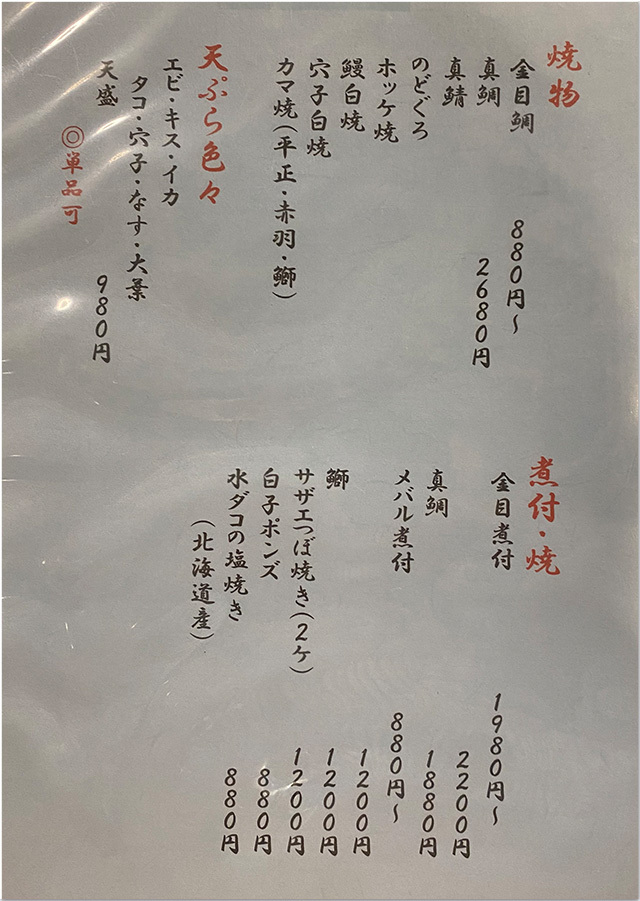 焼物
金目鯛
880円~
真鯛
2680円
真鯖
のどぐろ
ホッケ焼
鰻白焼
穴子白焼
カマ焼(平正・赤羽・鰤)
天ぷら色々
エビ・キス・イカ
タコ・穴子・なす・大葉
天盛
980円
◎単品可
煮付・焼
金目煮付
1980円~
2200円
真鯛
1880円
メバル煮付
880円~
1200円
鰤
1200円
サザエつぼ焼き(2ケ)
1200円
白子ポンズ
880円
水ダコの塩焼き
880円
(北海道産)